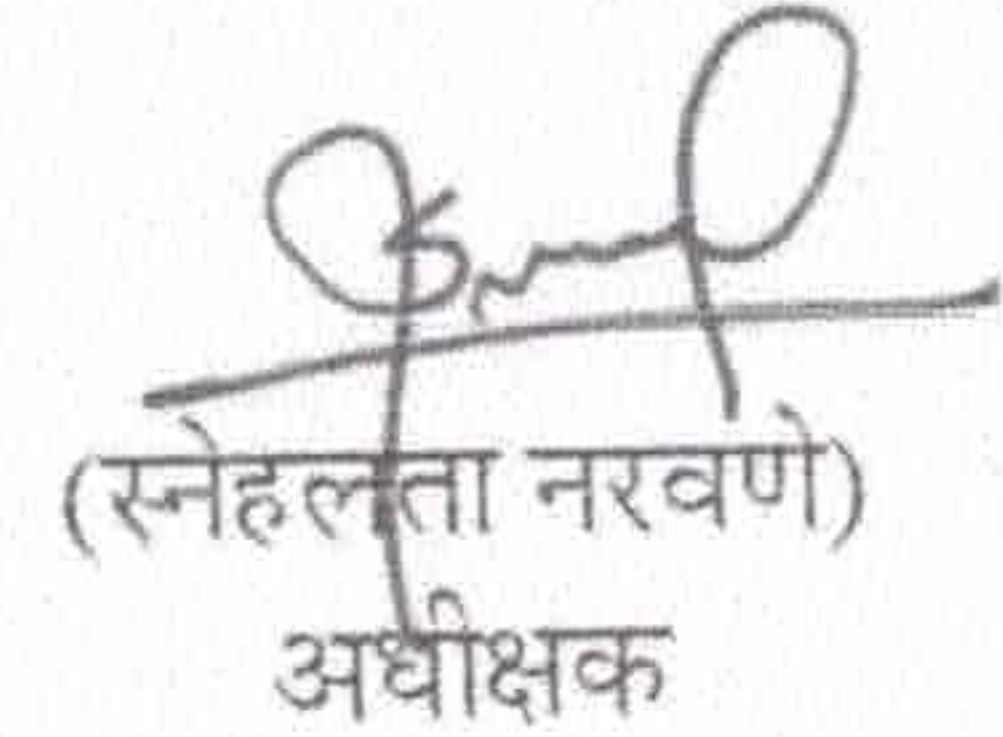 (स्नेहलता नरवणे)
अधीक्षक